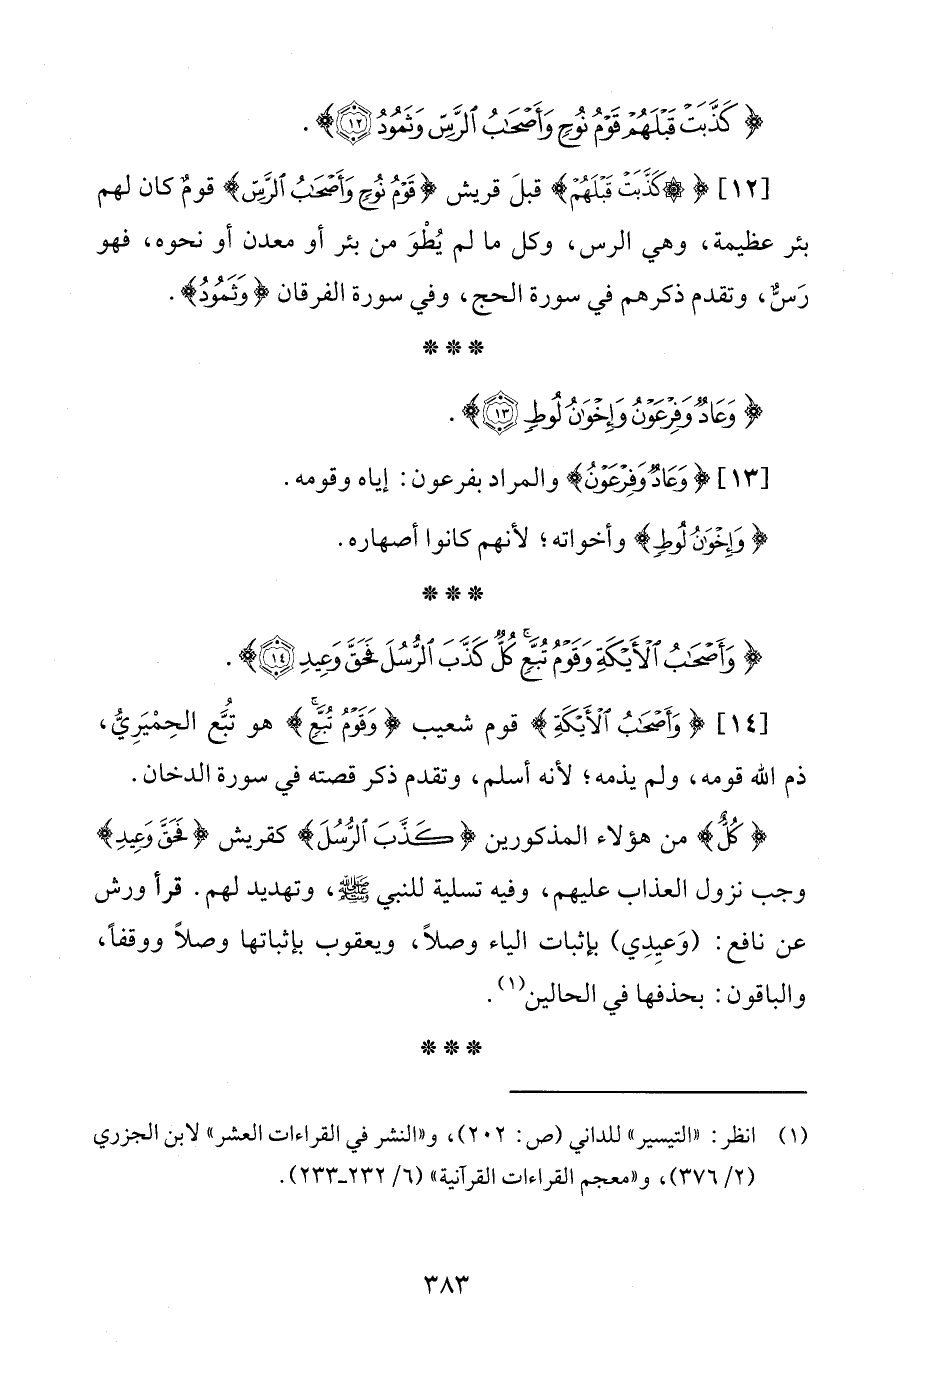 ﴿ كَذَّبَتْ قَبْلَهُمْ قَوْمُ نُوحٍ وَأَصْحَابُ الرَّسِّ وَثَمُودُ ١٢ ﴾ .
[١٢] ﴿ ۞ كَذَّبَتْ قَبْلَهُمْ ﴾ قبلَ قريش ﴿ قَوْمُ نُوحٍ وَأَصْحَابُ الرَّسِّ ﴾ قومٌ كان لهم
بئر عظيمة، وهي الرس، وكل ما لم يُطْوَ من بئر أو معدن أو نحوه، فهو
رَسٌّ، وتقدم ذكرهم في سورة الحج، وفي سورة الفرقان ﴿ وَثَمُودُ ﴾ .
* * *
﴿ وَعَادٌ وَفِرْعَوْنُ وَإِخْوَانُ لُوطٍ ١٣ ﴾ .
[١٣] ﴿ وَعَادٌ وَفِرْعَوْنُ ﴾ والمراد بفرعون: إياه وقومه.
﴿ وَإِخْوَانُ لُوطٍ ﴾ وأخواته؛ لأنهم كانوا أصهاره.
* * *
﴿ وَأَصْحَابُ الْأَيْكَةِ وَقَوْمُ تُبَّعٍ ۚ كُلٌّ كَذَّبَ الرُّسُلَ فَحَقَّ وَعِيدِ ١٤ ﴾ .
[١٤] ﴿ وَأَصْحَابُ الْأَيْكَةِ ﴾ قوم شعيب ﴿ وَقَوْمُ تُبَّعٍ ۚ ﴾ هو تبَّع الحِمْيَرِيُّ،
ذم الله قومه، ولم يذمه؛ لأنه أسلم، وتقدم ذكر قصته في سورة الدخان.
﴿ كُلٌّ ﴾ من هؤلاء المذكورين ﴿ كَذَّبَ الرُّسُلَ ﴾ كقريش ﴿ فَحَقَّ وَعِيدِ ﴾
وجب نزول العذاب عليهم، وفيه تسلية للنبي ﷺ، وتهديد لهم. قرأ ورش
عن نافع: (وَعِيدِي) بإثبات الياء وصلاً، ويعقوب بإثباتها وصلاً ووقفاً،
والباقون: بحذفها في الحالين(١).
* * *
(١) انظر: «التيسير» للداني (ص: ٢٠٢)، و«النشر في القراءات العشر» لابن الجزري
(٢/ ٣٧٦)، و«معجم القراءات القرآنية» (٦/ ٢٣٢-٢٣٣).
٣٨٣